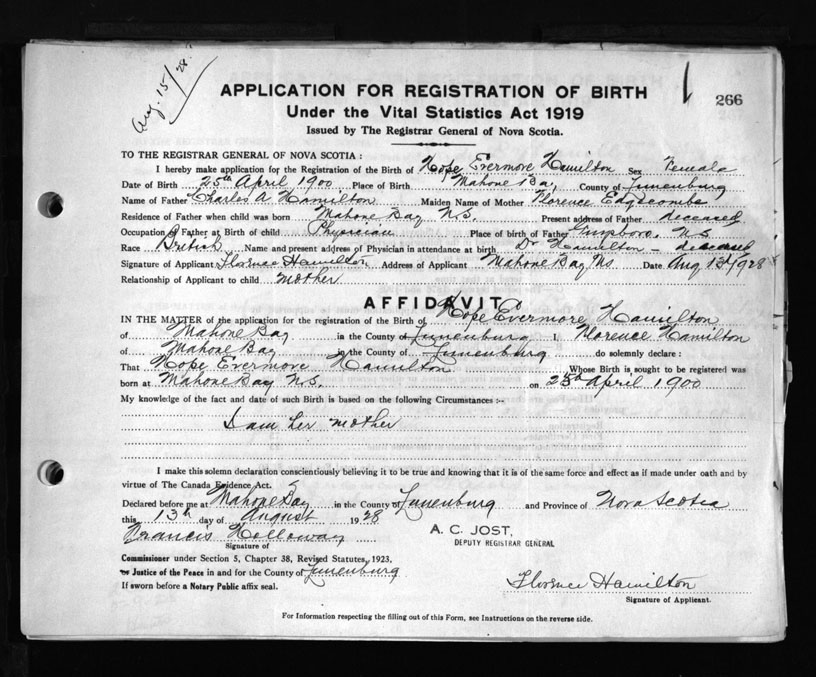 Aug. 15/28.
APPLICATION FOR REGISTRATION OF BIRTH
266
Under the Vital Statistics Act 1919
Issued by The Registrar General of Nova Scotia.
TO THE REGISTRAR GENERAL OF NOVA SCOTIA :
I hereby make application for the Registration of the Birth of Hope Evermore Hamilton Sex Female
Date of Birth 25th April 1900 Place of Birth Mahone Bay, County of Lunenburg
Name of Father Charles A Hamilton Maiden Name of Mother Florence Edgecombe
Residence of Father when child was born Mahone Bay N.S. Present address of Father deceased
Occupation of Father at Birth of child Physician Place of birth of Father N.S
Race British Name and present address of Physician in attendance at birth Dr Hamilton - deceased
Signature of Applicant Florence Hamilton Address of Applicant Mahone Bay Ns. Date Aug 13th/928
Relationship of Applicant to child mother
AFFIDAVIT
IN THE MATTER of the application for the registration of the Birth of Hope Evermore Hamilton
of Mahone Bay in the County of Lunenburg I, Florence Hamilton
of Mahone Bay in the County of Lunenburg do solemnly declare :
That Hope Evermore Hamilton Whose Birth is sought to be registered was
born at Mahone Bay N.S. on 25th April 1900
My knowledge of the fact and date of such Birth is based on the following Circumstances :-
I am her mother
I make this solemn declaration conscientiously believing it to be true and knowing that it is of the same force and effect as if made under oath and by
virtue of The Canada Evidence Act.
Declared before me at Mahone Bay in the County of Lunenburg and Province of Nova Scotia
this 13th day of August 1928
Francis Holloway
A. C. JOST,
Signature of
DEPUTY REGISTRAR GENERAL
Commissioner under Section 5, Chapter 38, Revised Statutes, 1923,
or Justice of the Peace in and for the County of Lunenburg
If sworn before a Notary Public affix seal.
Florence Hamilton
Signature of Applicant.
For Information respecting the filling out of this Form, see Instructions on the reverse side.